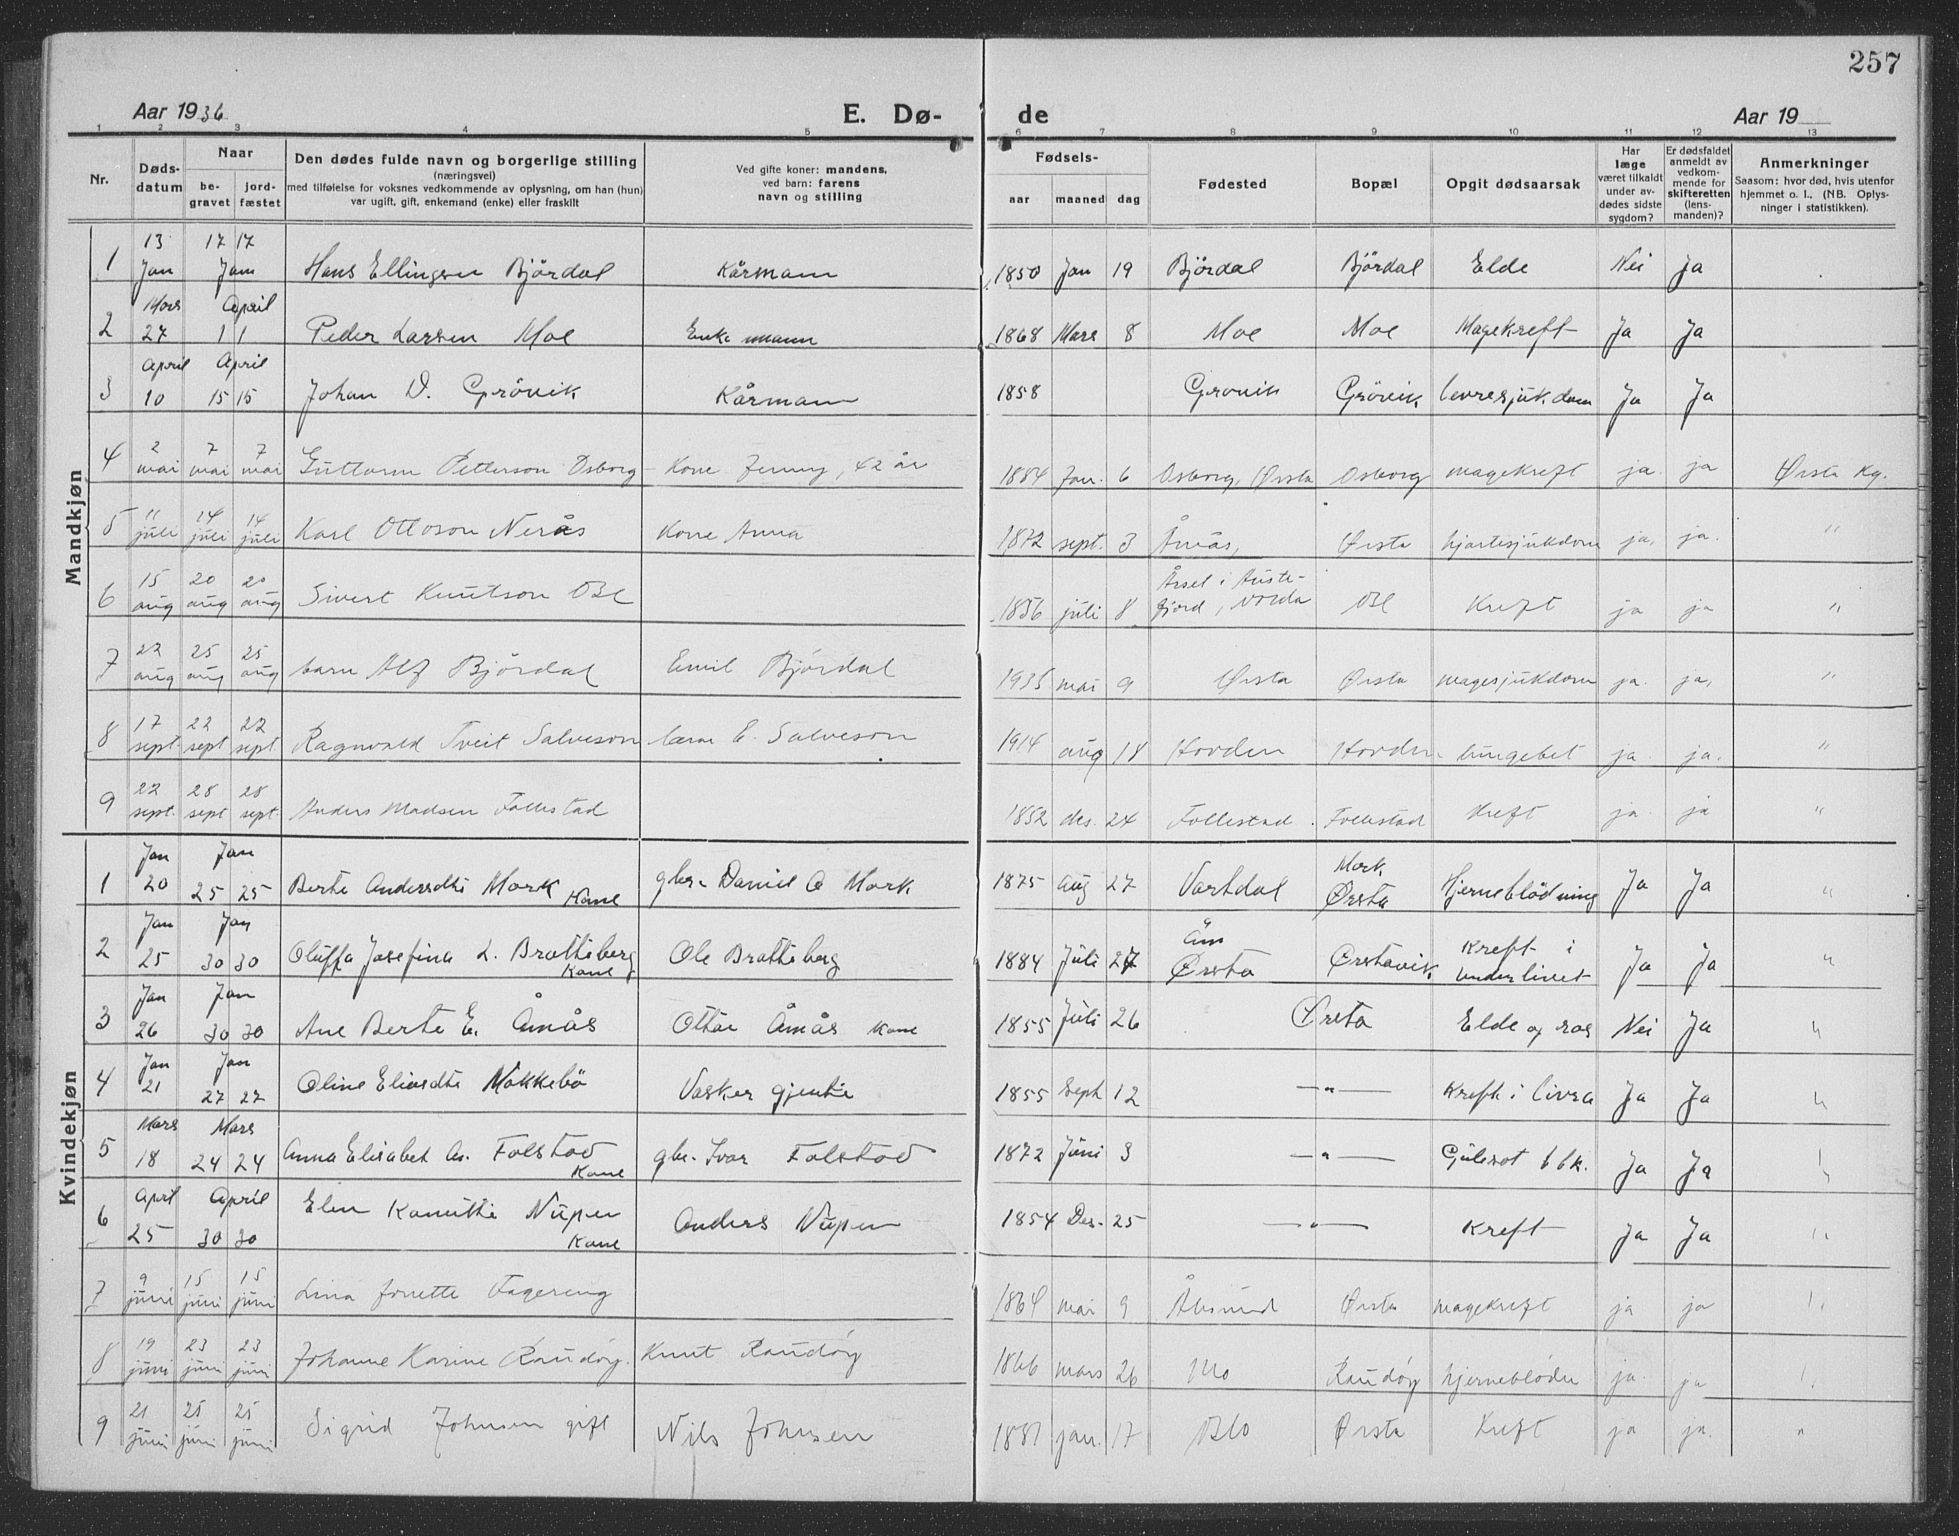 257
Aar 1936 E. Dø- de Aar 19
1 2 3 4 5 6 7 8 9 10 11 12 13
Nr. Døds-datum Naar be-gravet jord-fæstet Den dødes fulde navn og borgerlige stilling (næringsvei) med tilføielse for voksnes vedkommende av oplysning, om han (hun) var ugift, gift, enkemand (enke) eller fraskilt Ved gifte koner: mandens, ved barn: farens navn og stilling Fødsels- aar maaned dag Fødested Bopæl Opgit dødsaarsak Har læge været tilkaldt under av-dødes sidste sygdom? Er dødsfaldet anmeldt av vedkom-mende for skifteretten (lens-manden)? Anmerkninger Saasom: hvor død, hvis utenfor hjemmet o. l., (NB. Oplys-ninger i statistikken).
Mandkjøn
1 13 Jan 17 17 Jan Hans Ellingsen Bjørdal Kårmann 1850 Jan 19 Bjørdal Bjørdal Elde Nei Ja
2 Mars 27 April 1 1 Peder Larsen Moe Enkemann 1868 Mars 8 Moe Moe Magekreft Ja Ja
3 April 10 April 15 15 Johan D. Grövik Kårmann 1858 Grovik Grövik levresjukdom Ja Ja
4 2 mai 7 mai 7 mai Guttorm Petterson Osborg Kone Jenny, 42 år 1884 Jan. 6 Osborg, Ørsta Osborg magekreft ja. ja Ørsta kg.
5 11 juli 14 juli 14 juli Karl Ottoson Nerås Kone Anna 1872 sept. 3 Åmås, Ørsta hjartesjukdom ja, ja. "
6 15 aug 20 aug 20 aug Sivert Knutson 1856 juli 8 Årset i Auste-fjord, Vorda kreft ja ja "
7 22 aug 25 aug 25 aug barn Alf Bjørdal Emil Bjørdal 1935 mai 9 Ørsta Ørsta magesjukdom ja. ja, "
8 17 sept. 22 sept 22 sept. Ragnvald Tveit Salveson lærar E. Salveson 1914 aug 18 Hovden Hovden lungebet ja ja. "
9 22 sept. 28 sept 28 sept. Anders Madsen Follestad 1852 des. 24 Follestad Follestad kreft ja. ja "
Kvindekjøn
1 Jan 20 Jan 25 25 Berte Andersdtr Mork Kone gbr. Daniel A Mork 1875 Aug 27 Vartdal Mork, Ørsta Hjerneblødning Ja Ja "
2 Jan 25 Jan 30 30 Oluffa Josefina L. Bratteberg Kone Ole Bratteberg 1884 Juli 27 Åm Ørsta Ørstavik Kreft i underlivet Ja Ja "
3 Jan 26 Jan 30 30 Ane Berte E. Åmås Ottar Åmås kone 1855 Juli 26 Ørsta Elde og ros Nei Ja "
4 Jan 21 Jan 27 27 Oline Eliasdtr Mokkebø Vasker gjente 1855 Sept 12 —"— Kreft i livra Ja Ja "
5 Mars 18 Mars 24 24 Anna Elisabet As. Folstad Kone gbr. Ivar Folstad 1872 Juni 3 —"— Gulesot Ja Ja "
6 April 25 April 30 30 Elen Kanutte Nupen Kone Anders Nupen 1854 Des. 25 —"— Kreft Ja Ja "
7 9 juni 15 juni 15 juni Lina Jonette Fagereng 1864 mai 9 Ålesund Ørsta magekreft ja ja "
8 19 juni 23 juni 23 juni Johanne Karine Raudøy. Knut Raudøy 1866 mars 26 Mo Raudøy hjerneblødn ja. ja "
9 21 juni 25 juni 25 juni Sigrid Johnsen gift Nils Johnsen 1881 jan. 17 Ørsta Kreft ja ja. "